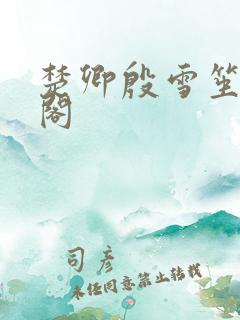 楚卿殷雪笙
阁
司彦
未经同意禁止转载